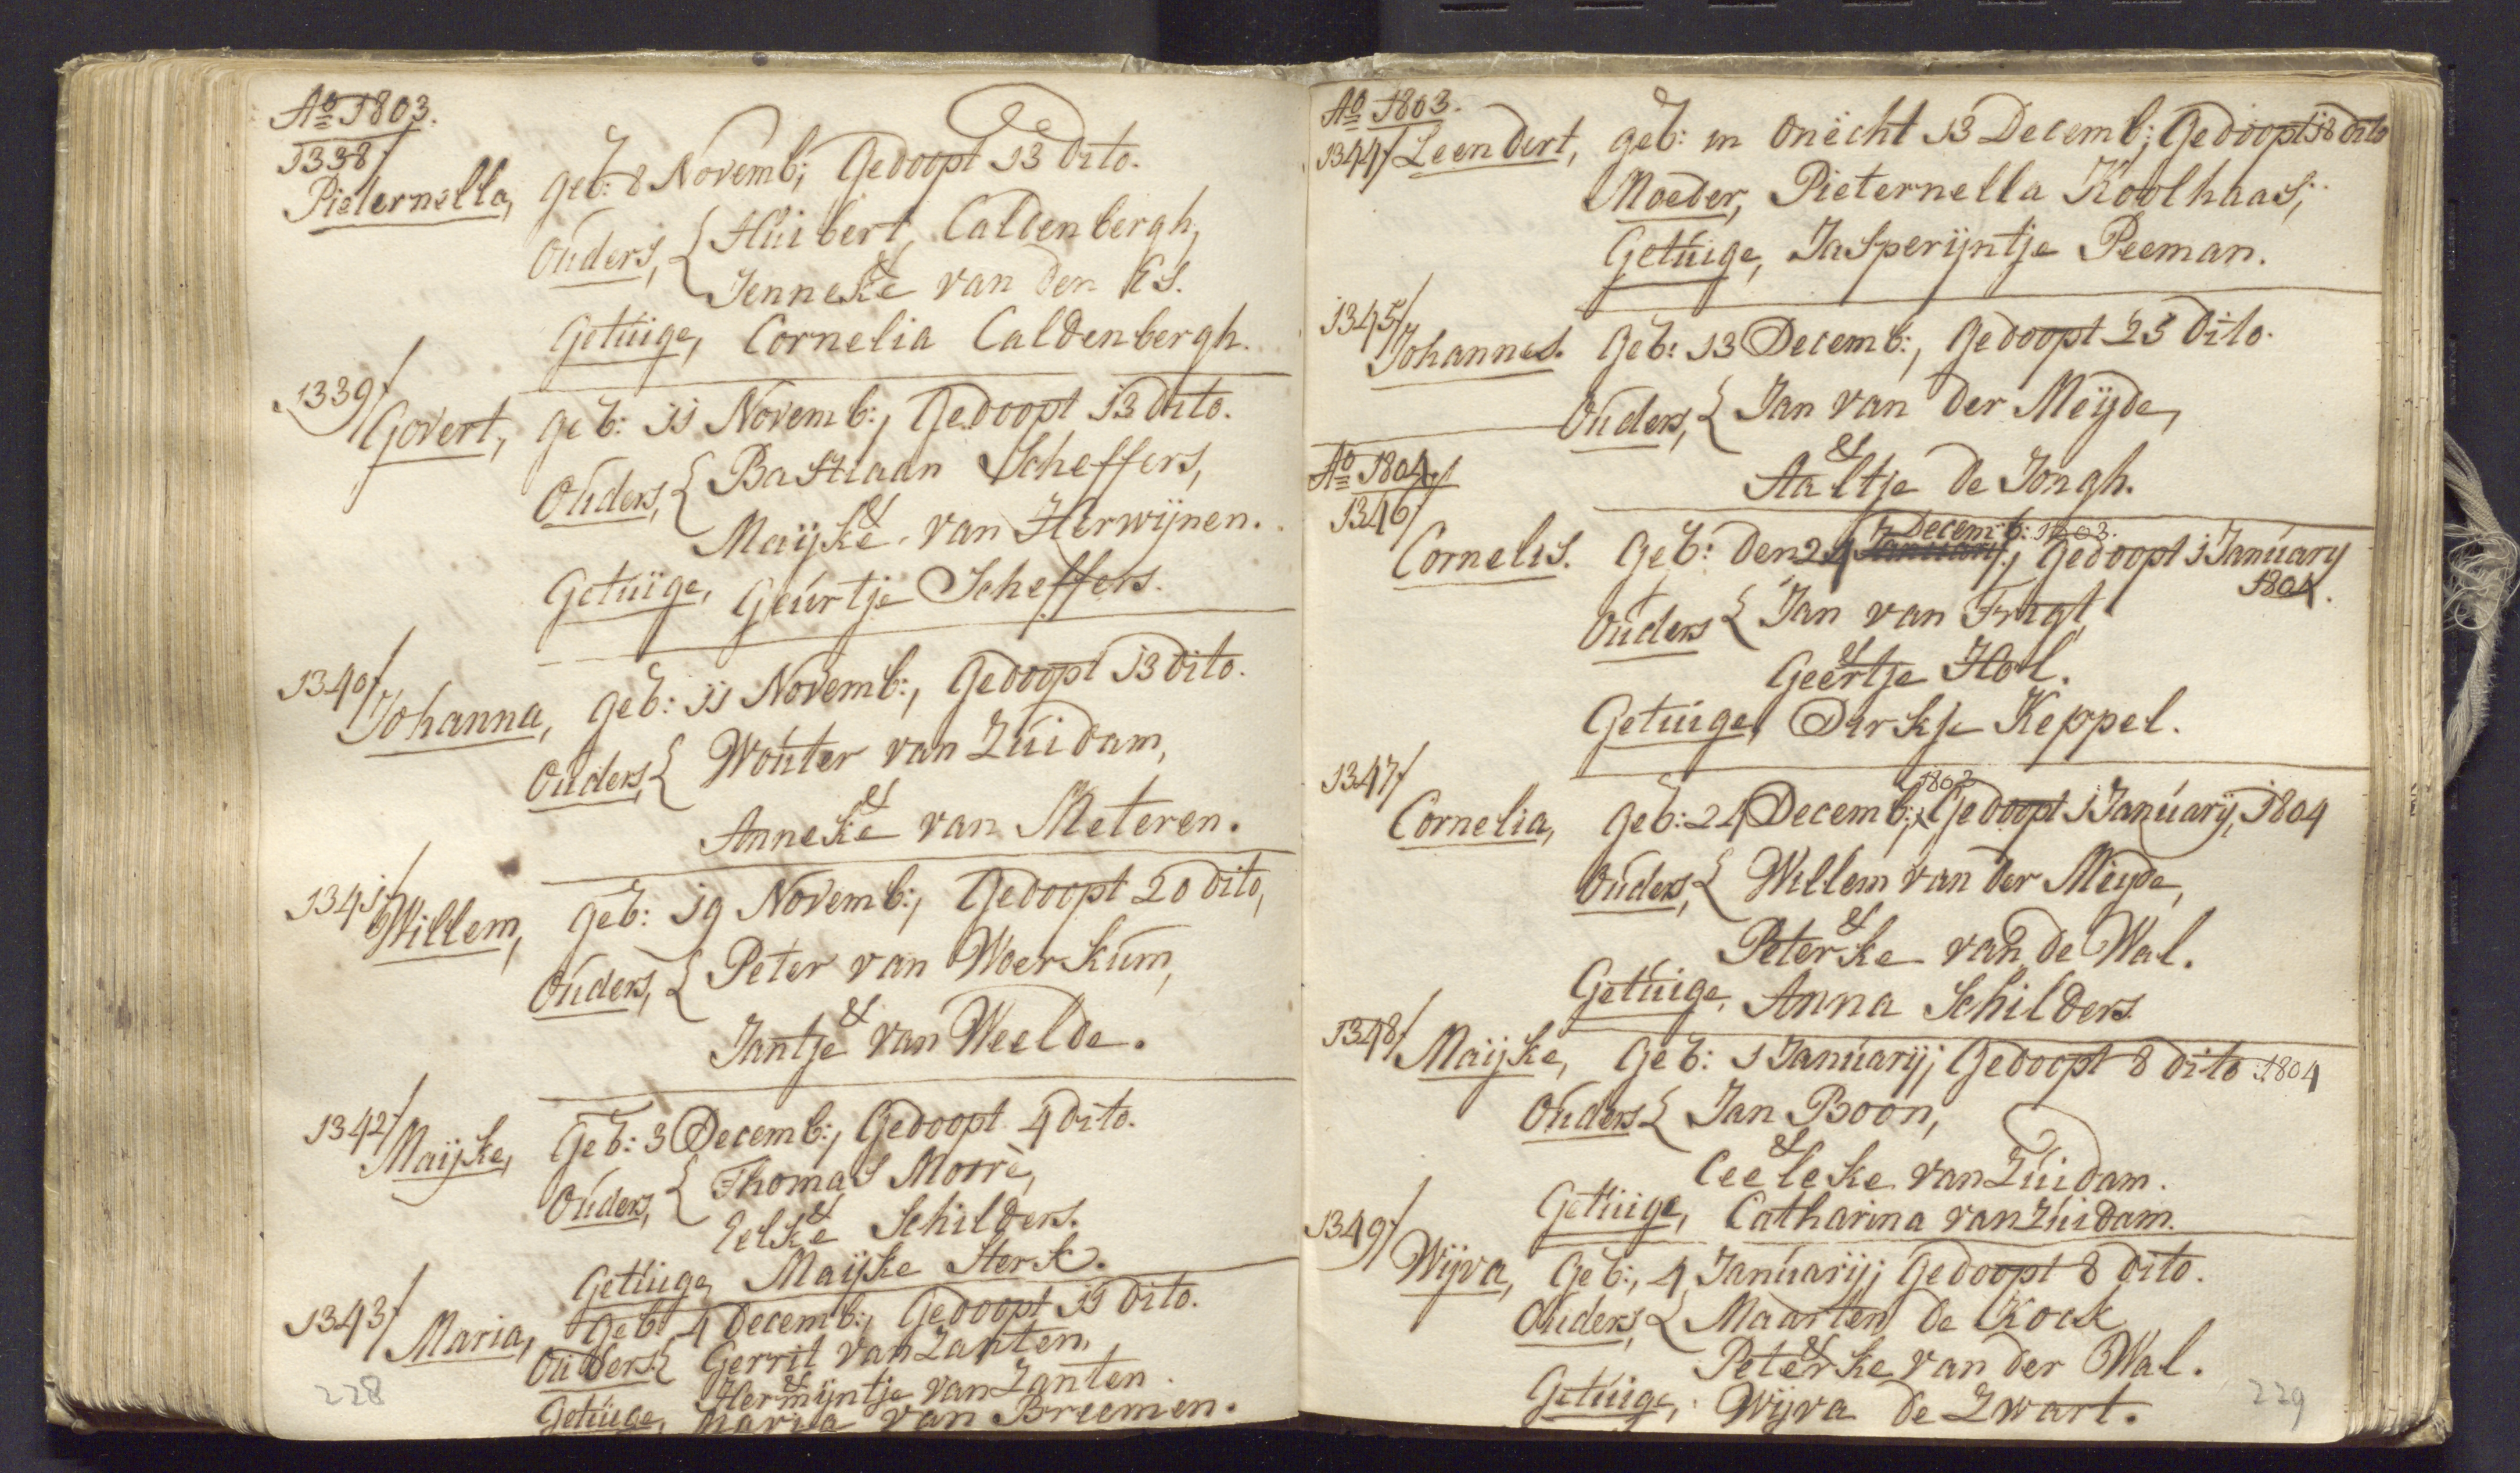 Ao 1803.
1338/
Pieternella, geb: 8 Novemb; Gedoopt 13 dito.
Ouders, { Huibert Caldenbergh,
&
Jenneke van den Es.
Getuige, Cornelia Caldenbergh.
1339/
Govert, geb: 11 Novemb:, Gedoopt 13 dito.
Ouders, { Bastiaan Scheffers,
&
Maijke van Herwijnen.
Getuige, Geurtje Scheffers.
1340/
Johanna, geb: 11 Novemb:, Gedoopt 13 dito.
Ouders { Wouter van Zuidam,
&
Anneke van Meteren.
1341/
Willem, geb: 19 Novemb:, Gedoopt 20 dito,
Ouders, { Peter van Woerkum,
&
Jantje van Weelde.
1342/
Maijke, Geb: 3 Decemb:, Gedoopt 4 dito.
Ouders, { Thomas Morre,
&
Eelske Schilders.
Getuige Maijke Sterk.
1343/
Maria, Geb: 4 Decemb:, Gedoopt 11 dito.
Ouders { Gerrit van Zanten,
&
Hermijntje van Zanten.
Getuige, Maria van Breemen.
228
Ao 1803.
1344/ Leendert, geb: in onëcht 13 Decemb; Gedoopt 18 dito
Moeder, Pieternella Koolhaas,
Getuige, Jasperijntje Peeman.
1345/
Johannes. Geb: 13 Decemb:, Gedoopt 25 dito.
Ouders, { Jan van der Meijde,
&
Aaltje de Jongh.
Ao 1804
1346/
Decemb: 1803.
Cornelis. Geb: den 24 January; Gedoopt 1 January
1804.
Ouders { Jan van Trigt
&
Geertje Hol.
Getuige, Dirkje Keppel.
1347/
1803
Cornelia, geb: 24 Decemb:, Gedoopt 1 Januarij, 1804
Ouders, { Willem van der Meijde,
&
Peterke van de Wal.
Getuige, Anna Schilders
1348/ Maijke, Geb: 1 Januarij; Gedoopt 8 dito 1804
Ouders { Jan Boon,
&
Ceeleke van Zuidam.
Getuige, Catharina van Zuidam.
1349/
Wijva, Geb:, 4 Januarij; Gedoopt 8 dito.
Ouders, { Maarten de Kock
&
Peterke van der Wal.
Getuige, Wijva de Zwart.
229